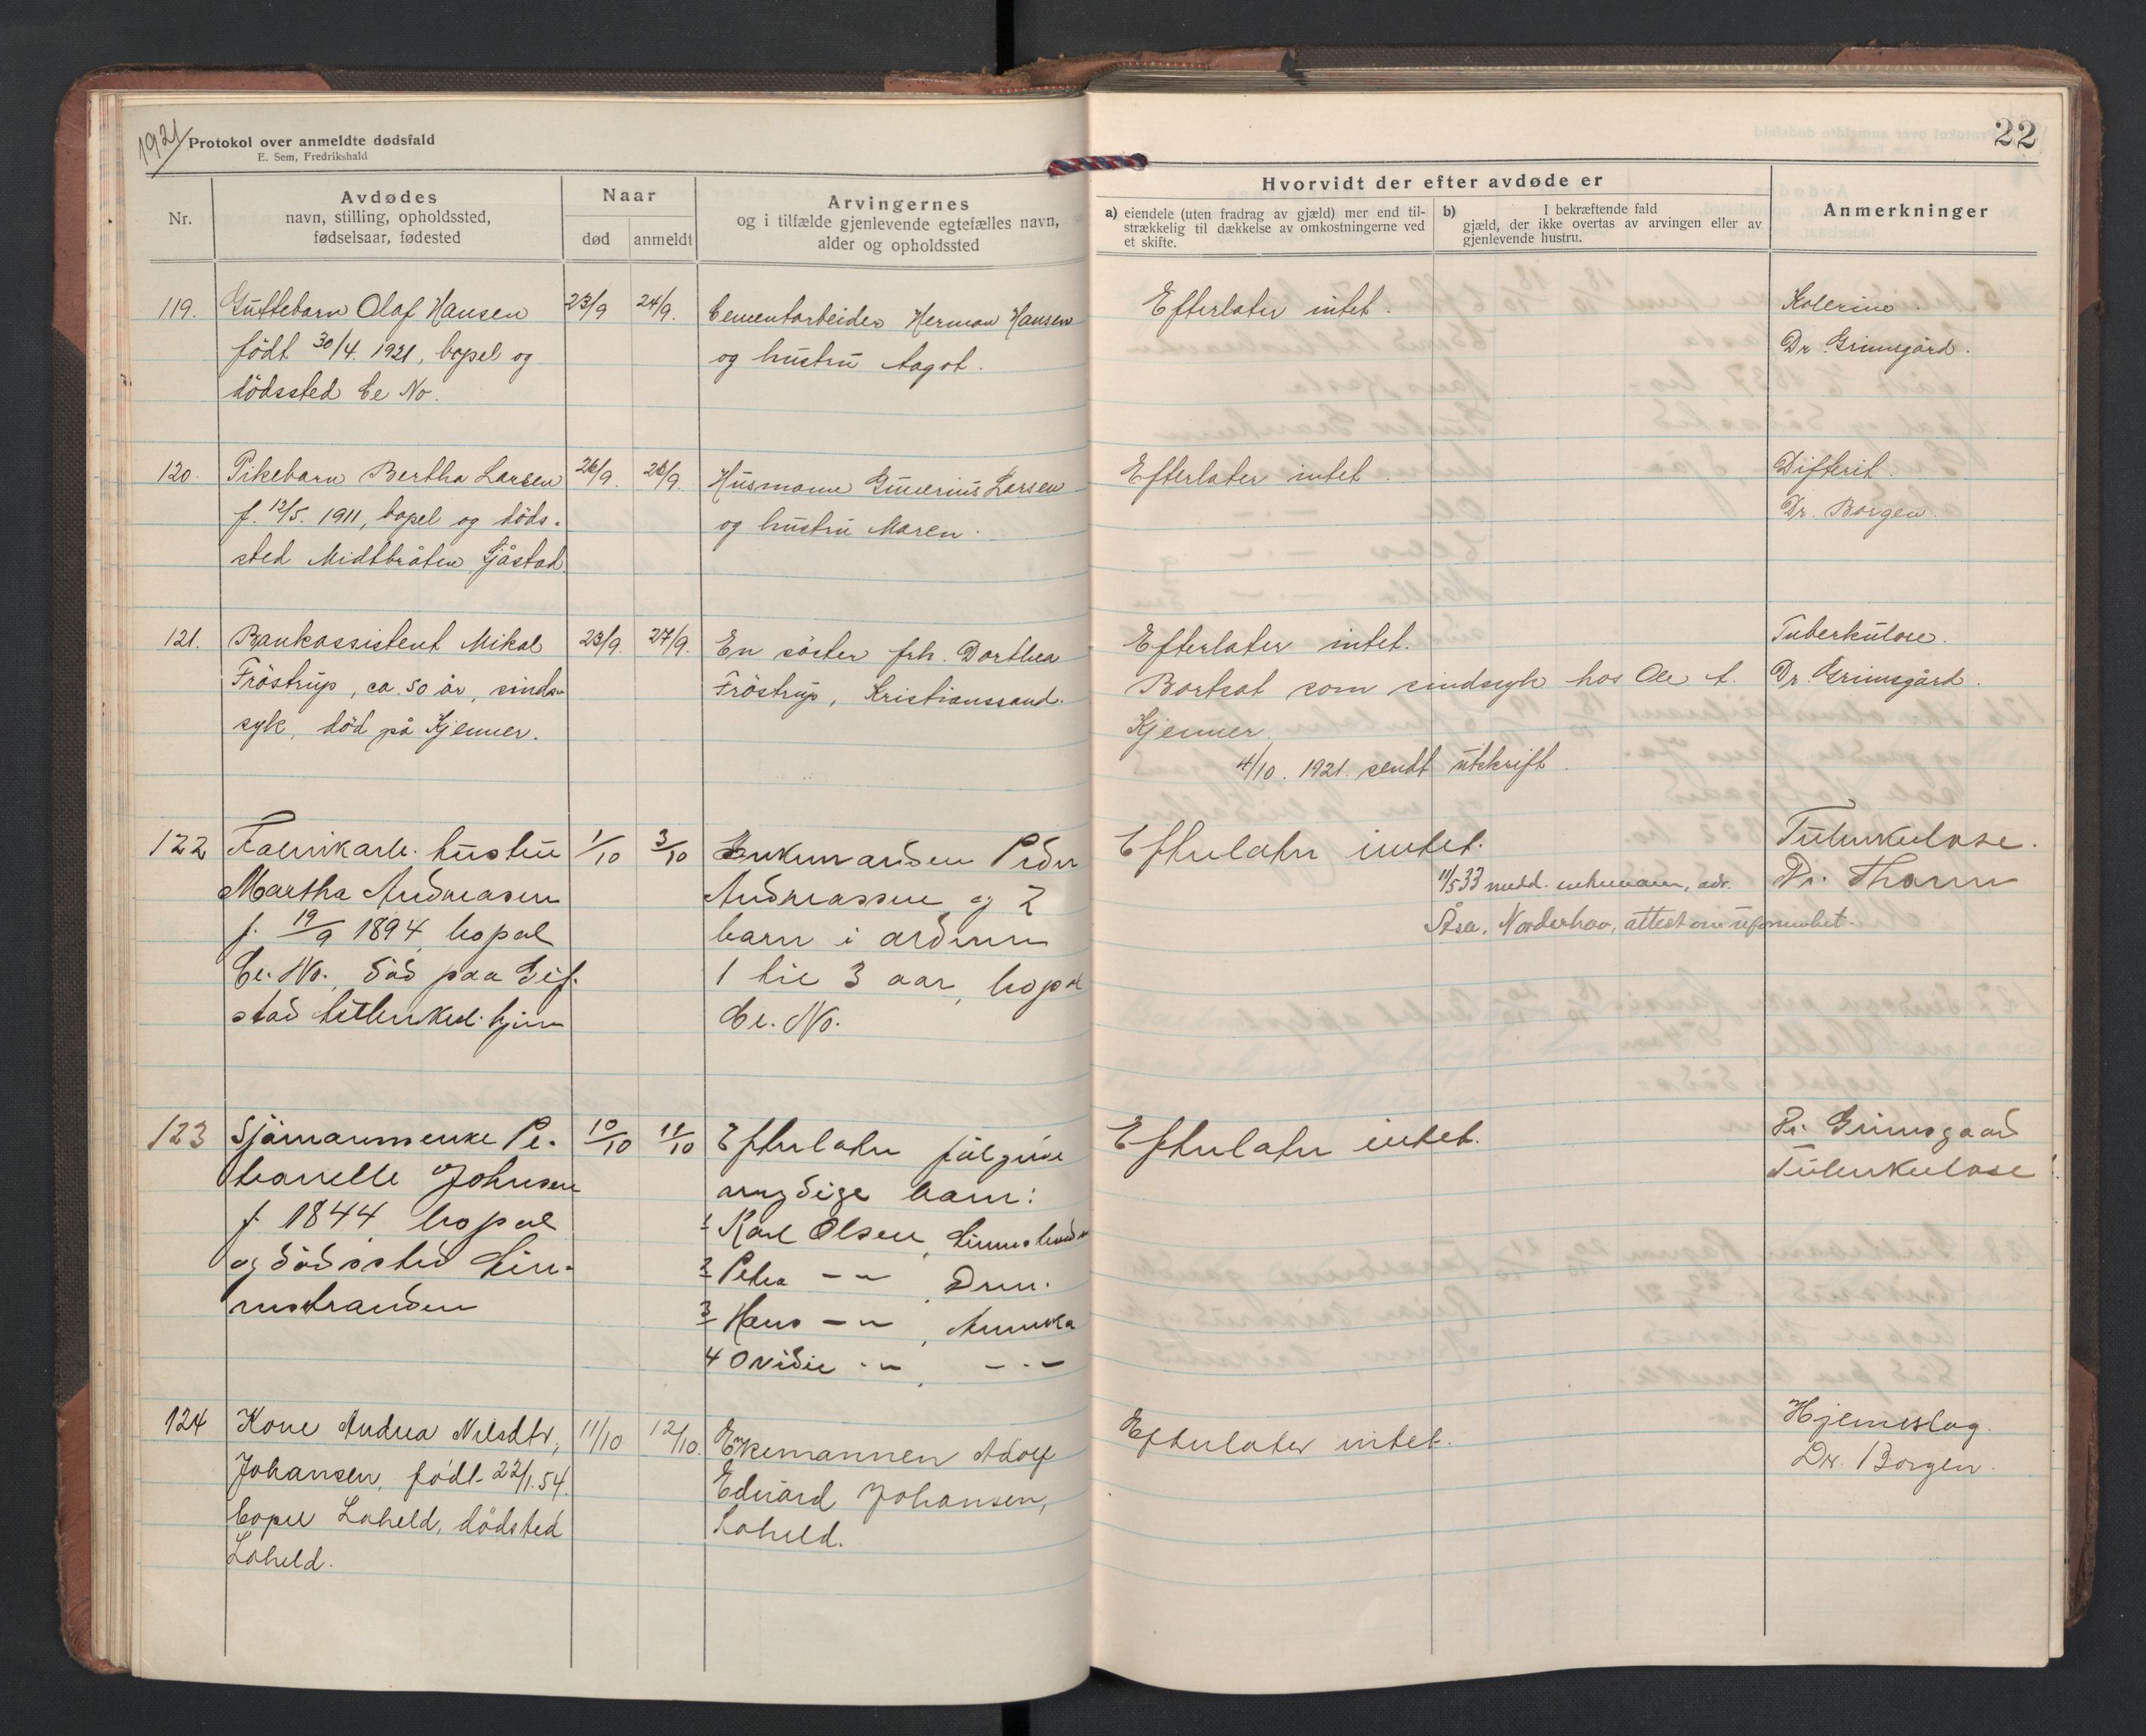 1921
Protokol over anmeldte dødsfald
E. Sem, Fredrikshald
22
Nr.
Avdødes
navn, stilling, opholdssted,
fødselsaar, fødested
Naar
død
anmeldt
Arvingernes
og i tilfælde gjenlevende egtefælles navn,
alder og opholdssted
Hvorvidt der efter avdøde er
a) eiendele (uten fradrag av gjæld) mer end til-
strækkelig til dækkelse av omkostningerne ved
et skifte.
b) I bekræftende fald
gjæld, der ikke overtas av arvingen eller av
gjenlevende hustru.
Anmerkninger
119.
Guttebarn Olaf Hansen
födt 30/4. 1921, bopel og
dödssted Ce No.
23/9
24/9.
Cementarbeider Herman Hansen
og hustru Aagot.
Efterlater intet.
Kolerine.
Dr. Grimsgård.
120.
Pikebarn Bertha Larsen
f. 12/5. 1911, bopel og döds-
sted Midtbråten, Gjåstad.
26/9.
26/9.
Husmann Gunerius Larsen
og hustru Maren.
Efterlater intet.
Difterit.
Dr. Borgen.
121.
Bankassistent Mikal
Fröstrup, ca. 50 år, sinds-
syk, död på Kjenner.
23/9.
27/9.
En söster frk. Dorthea
Fröstrup, Kristianssand.
Efterlater intet.
Bortsat som sindssyk hos Ole A.
Kjenner.
4/10. 1921. sendt utskrift.
Tuberkulose.
Dr. Grimsgård.
122
Fabrikarb. hustru
Martha Andreasen
f. 19/9 1894, bopæl
Ce. No., död paa Gif-
stad tuberkul. hjem
1/10
3/10
Enkemanden Peder
Andreassen og 2
barn i alderen
1 til 3 aar, bopæl
Ce. No.
Efterlater intet.
11/5 33 medd. enkemann, adr.
Åsa, Norderhov, attest om uformuet.
Tuberkulose.
Dr. Thorm
123
Sjömannsenke Pe-
tronelle Johnsen
f. 1844, bopæl
og dödssted Lier-
stranden
10/10
11/10
Efterlater fölgende
myndige barn:
1 Karl Olsen, Lierstranden
2 Petra - " -, Drm.
3 Hans - " -, Amerika
4 Ovidie - " -, - " -
Efterlater intet.
Dr. Grimsgaard
Tuberkulose
124
Kone Andrea Nilsdtr.,
Johansen, födt 22/1.54.
bopel Loheld, dödsted
Loheld.
11/10
12/10.
Enkemannen Adolf
Edvard Johansen,
Loheld.
Efterlater intet.
Hjerneslag.
Dr. Borgen.